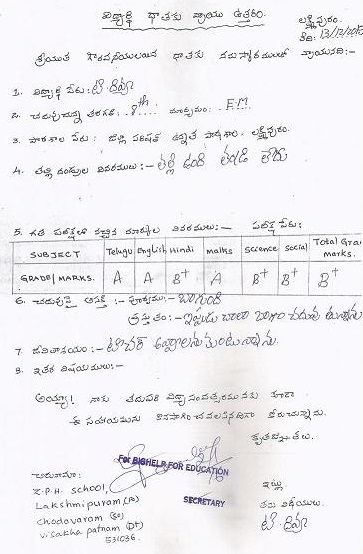 విద్యార్థి దాతకు వ్రాయు ఉత్తరం.
లక్ష్మీపురం.
తేది: 13/12/2013
శ్రీయుత గౌరవనీయులయిన దాతకు నమస్కారములతో వ్రాయునది:-
1. విద్యార్థి పేరు: టి. దివ్య
2. చదువుచున్న తరగతి: 8th మాధ్యమం: E.M.
3. పాఠశాల పేరు: జిల్లా పరిషత్ ఉన్నత పాఠశాల. లక్ష్మీపురం.
4. తల్లి తండ్రుల వివరములు:- తల్లి ఉంది తండ్రి లేరు
5. గత పరీక్షలో వచ్చిన మార్కుల వివరములు:- పరీక్ష పేరు:
SUBJECT Telugu English Hindi maths Science Social Total Gra marks.
GRADE/MARKS. A A B+ A B+ B+ B+
6. చదువుపై ఆసక్తి:- పూర్వము:- బాగుంది
ప్రస్తుతం:- ఇప్పుడు చాలా బాగా చదువుతున్నాను
7. జీవితాశయం:- టీచర్ అవ్వాలనుకుంటున్నాను.
8. ఇతర విషయములు:-
అయ్యా! నాకు తదుపరి విద్యాసంవత్సరమునకు కూడా
ఈ సహాయమును కొనసాగించవలసినదిగా కోరుచున్నాను.
కృతజ్ఞతలు.
చిరునామా:
Z.P.H School,
Lakshmipuram (P)
Chodavaram
Visakha patnam (DT)
531036.
For BIGHELP FOR EDUCATION
SECRETARY
ఇట్లు
తమ విధేయులు.
టి. దివ్య